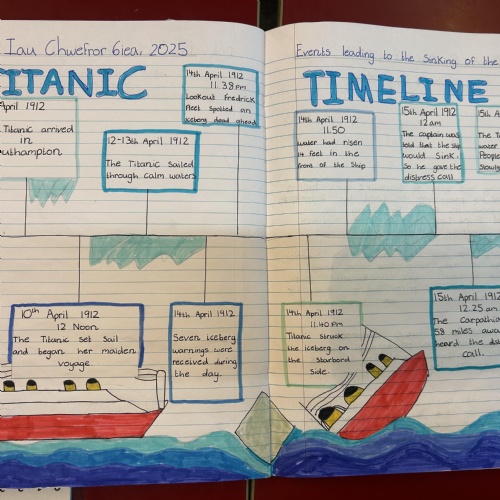 Iau Chwefror 6iea, 2025
Events leading to the sinking of the
TITANIC
TIMELINE
April 1912
Titanic arrived
in
outhampton
12-13th April 1912
The Titanic sailed
through calm waters
14th April 1912
11.38pm
Lookout Fredrick
Fleet spotted an
iceberg dead ahead
10th April 1912
12 Noon
The Titanic set Sail
and began her maiden
voyage.
14th April 1912
Seven iceberg
warnings were
received during
the day.
14th April 1912
11.50
water had risen
14 feet in the
front of the ship
15th April 1912
12am
The captain was
told that the ship
would sink.
So he gave the
distress call
15th A
The Ti
water
People
Slowly
14th April 1912
11:40 Pm
Titanic struck
the iceberg on
the Starbord
Side.
15th April 1912
12.25 am
The Carpathia
58 miles awa
heard the dis
call.